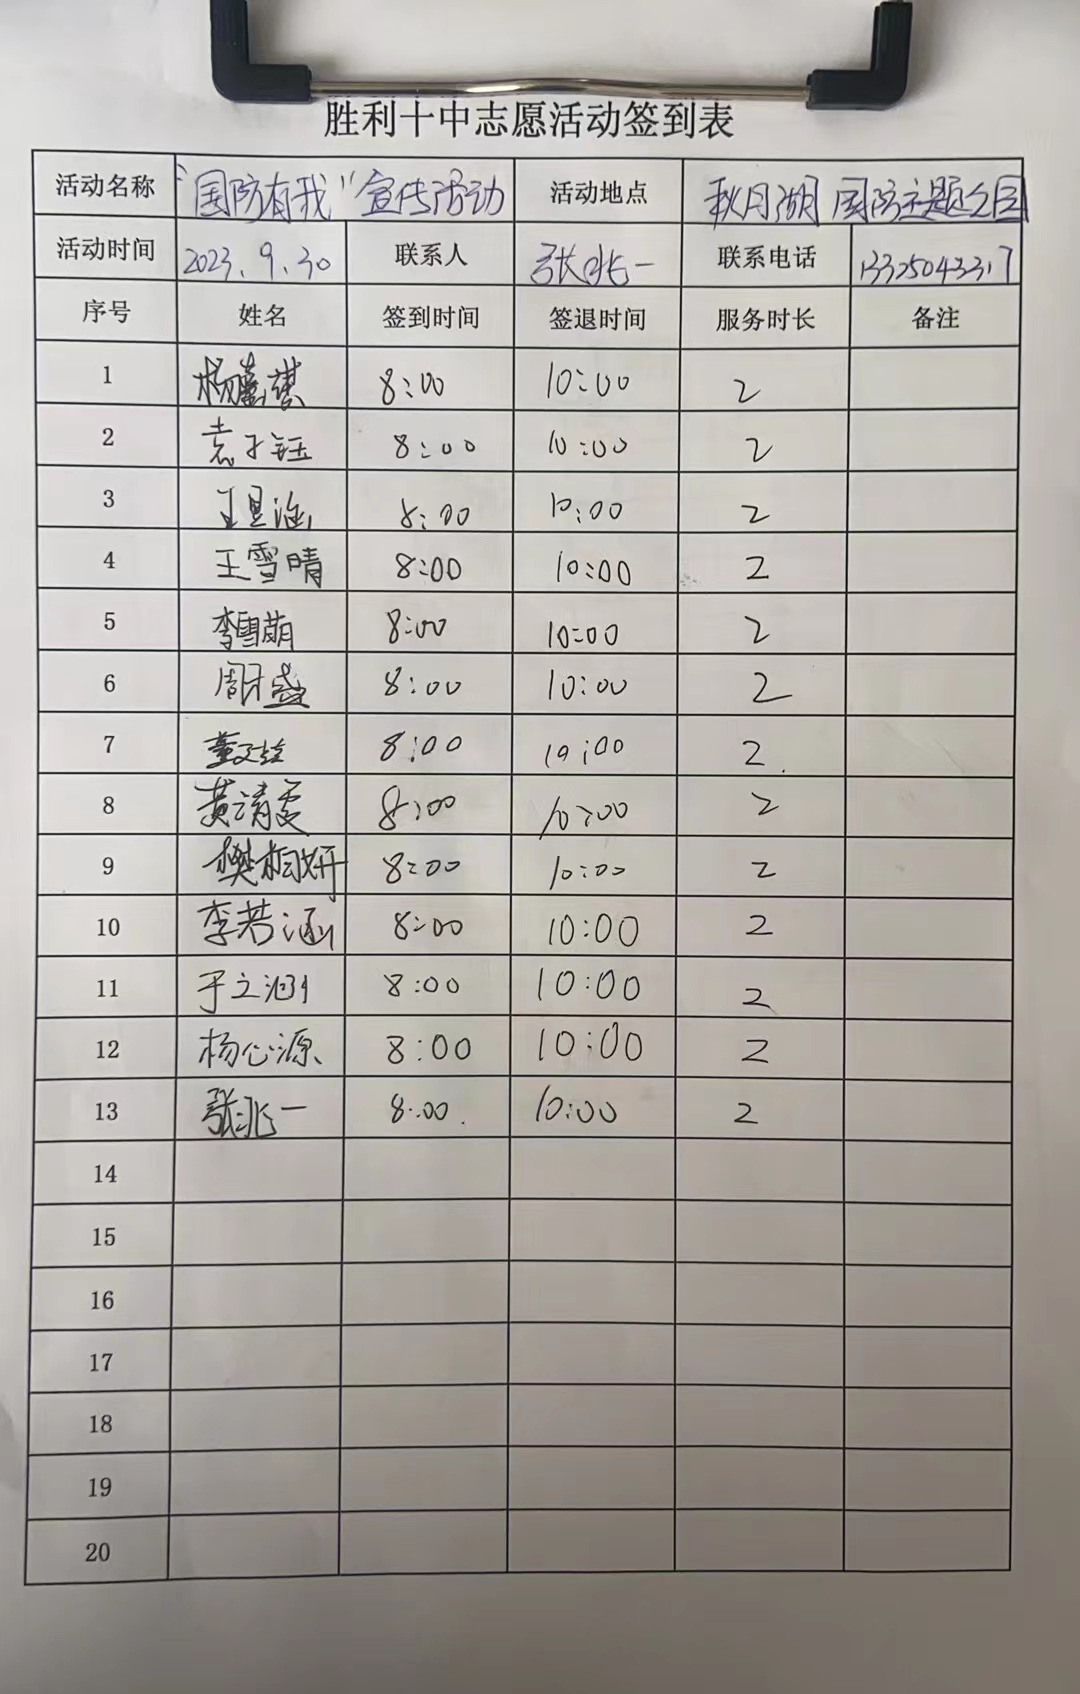 胜利十中志愿活动签到表
活动名称 "国防有我"宣传活动 活动地点 秋月湖国防主题公园
活动时间 2023.9.30 联系人 张兆一 联系电话 13325043317
序号 姓名 签到时间 签退时间 服务时长 备注
1 杨 8:00 10:00 2
2 袁子钰 8:00 10:00 2
3 王昱涵 8:00 10:00 2
4 王雪晴 8:00 10:00 2
5 李雪萌 8:00 10:00 2
6 周子盛 8:00 10:00 2
7 董 8:00 10:00 2
8 黄清雯 8:00 10:00 2
9 樊桐妍 8:00 10:00 2
10 李若涵 8:00 10:00 2
11 于之涵 8:00 10:00 2
12 杨心源 8:00 10:00 2
13 张兆一 8:00 10:00 2
14
15
16
17
18
19
20